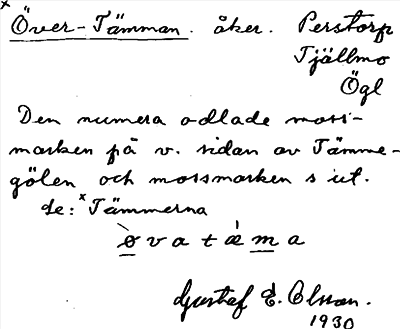 × Över-Tämman. åker. Perstorp
Tjällmo
Ögl
Den numera odlade moss-
marken på v. sidan av Tämme-
gölen och mossmarken s ut.
de: × Tämmerna
ò̱vatǽm̱a
Gustaf E. Olsson.
1930